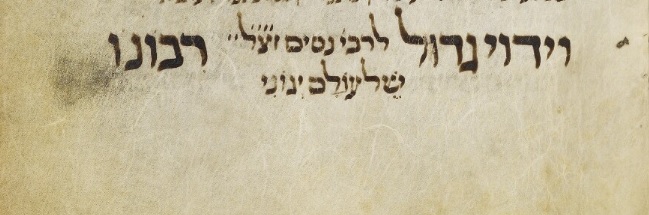 וידוי גדול לרבי נסים זצ״ל רבונו
של עולם